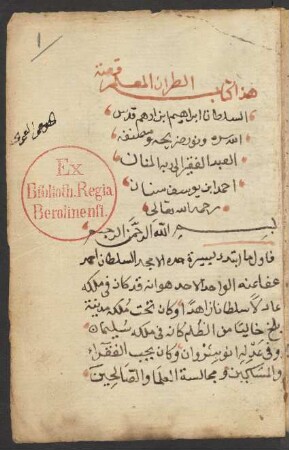 1
هذا كتاب الطراز المعلم قصة
السلطان ابراهيم ابن ادهم قدس
الله سره ونور ضريحه ومصنفه
العبد الفقير الى ربه المنان
احمد ابن يوسف سنان
رحمه الله تعالى
Ex
Biblioth. Regia
Berolinensi.
بسم الله الرحمن الرحيم
السلطان احمد
عفا عنه الواحد الاحد هو انه قد كان في مملكة
عادلا سلطانا زاهدا وكان تحت ملكه مدينة
بلخ خاليا من الظلم كان في ملكه سليمان
وفي عدله انوشروان وكان يحب الفقراء
والمساكين ومجالسة العلما والصالحين